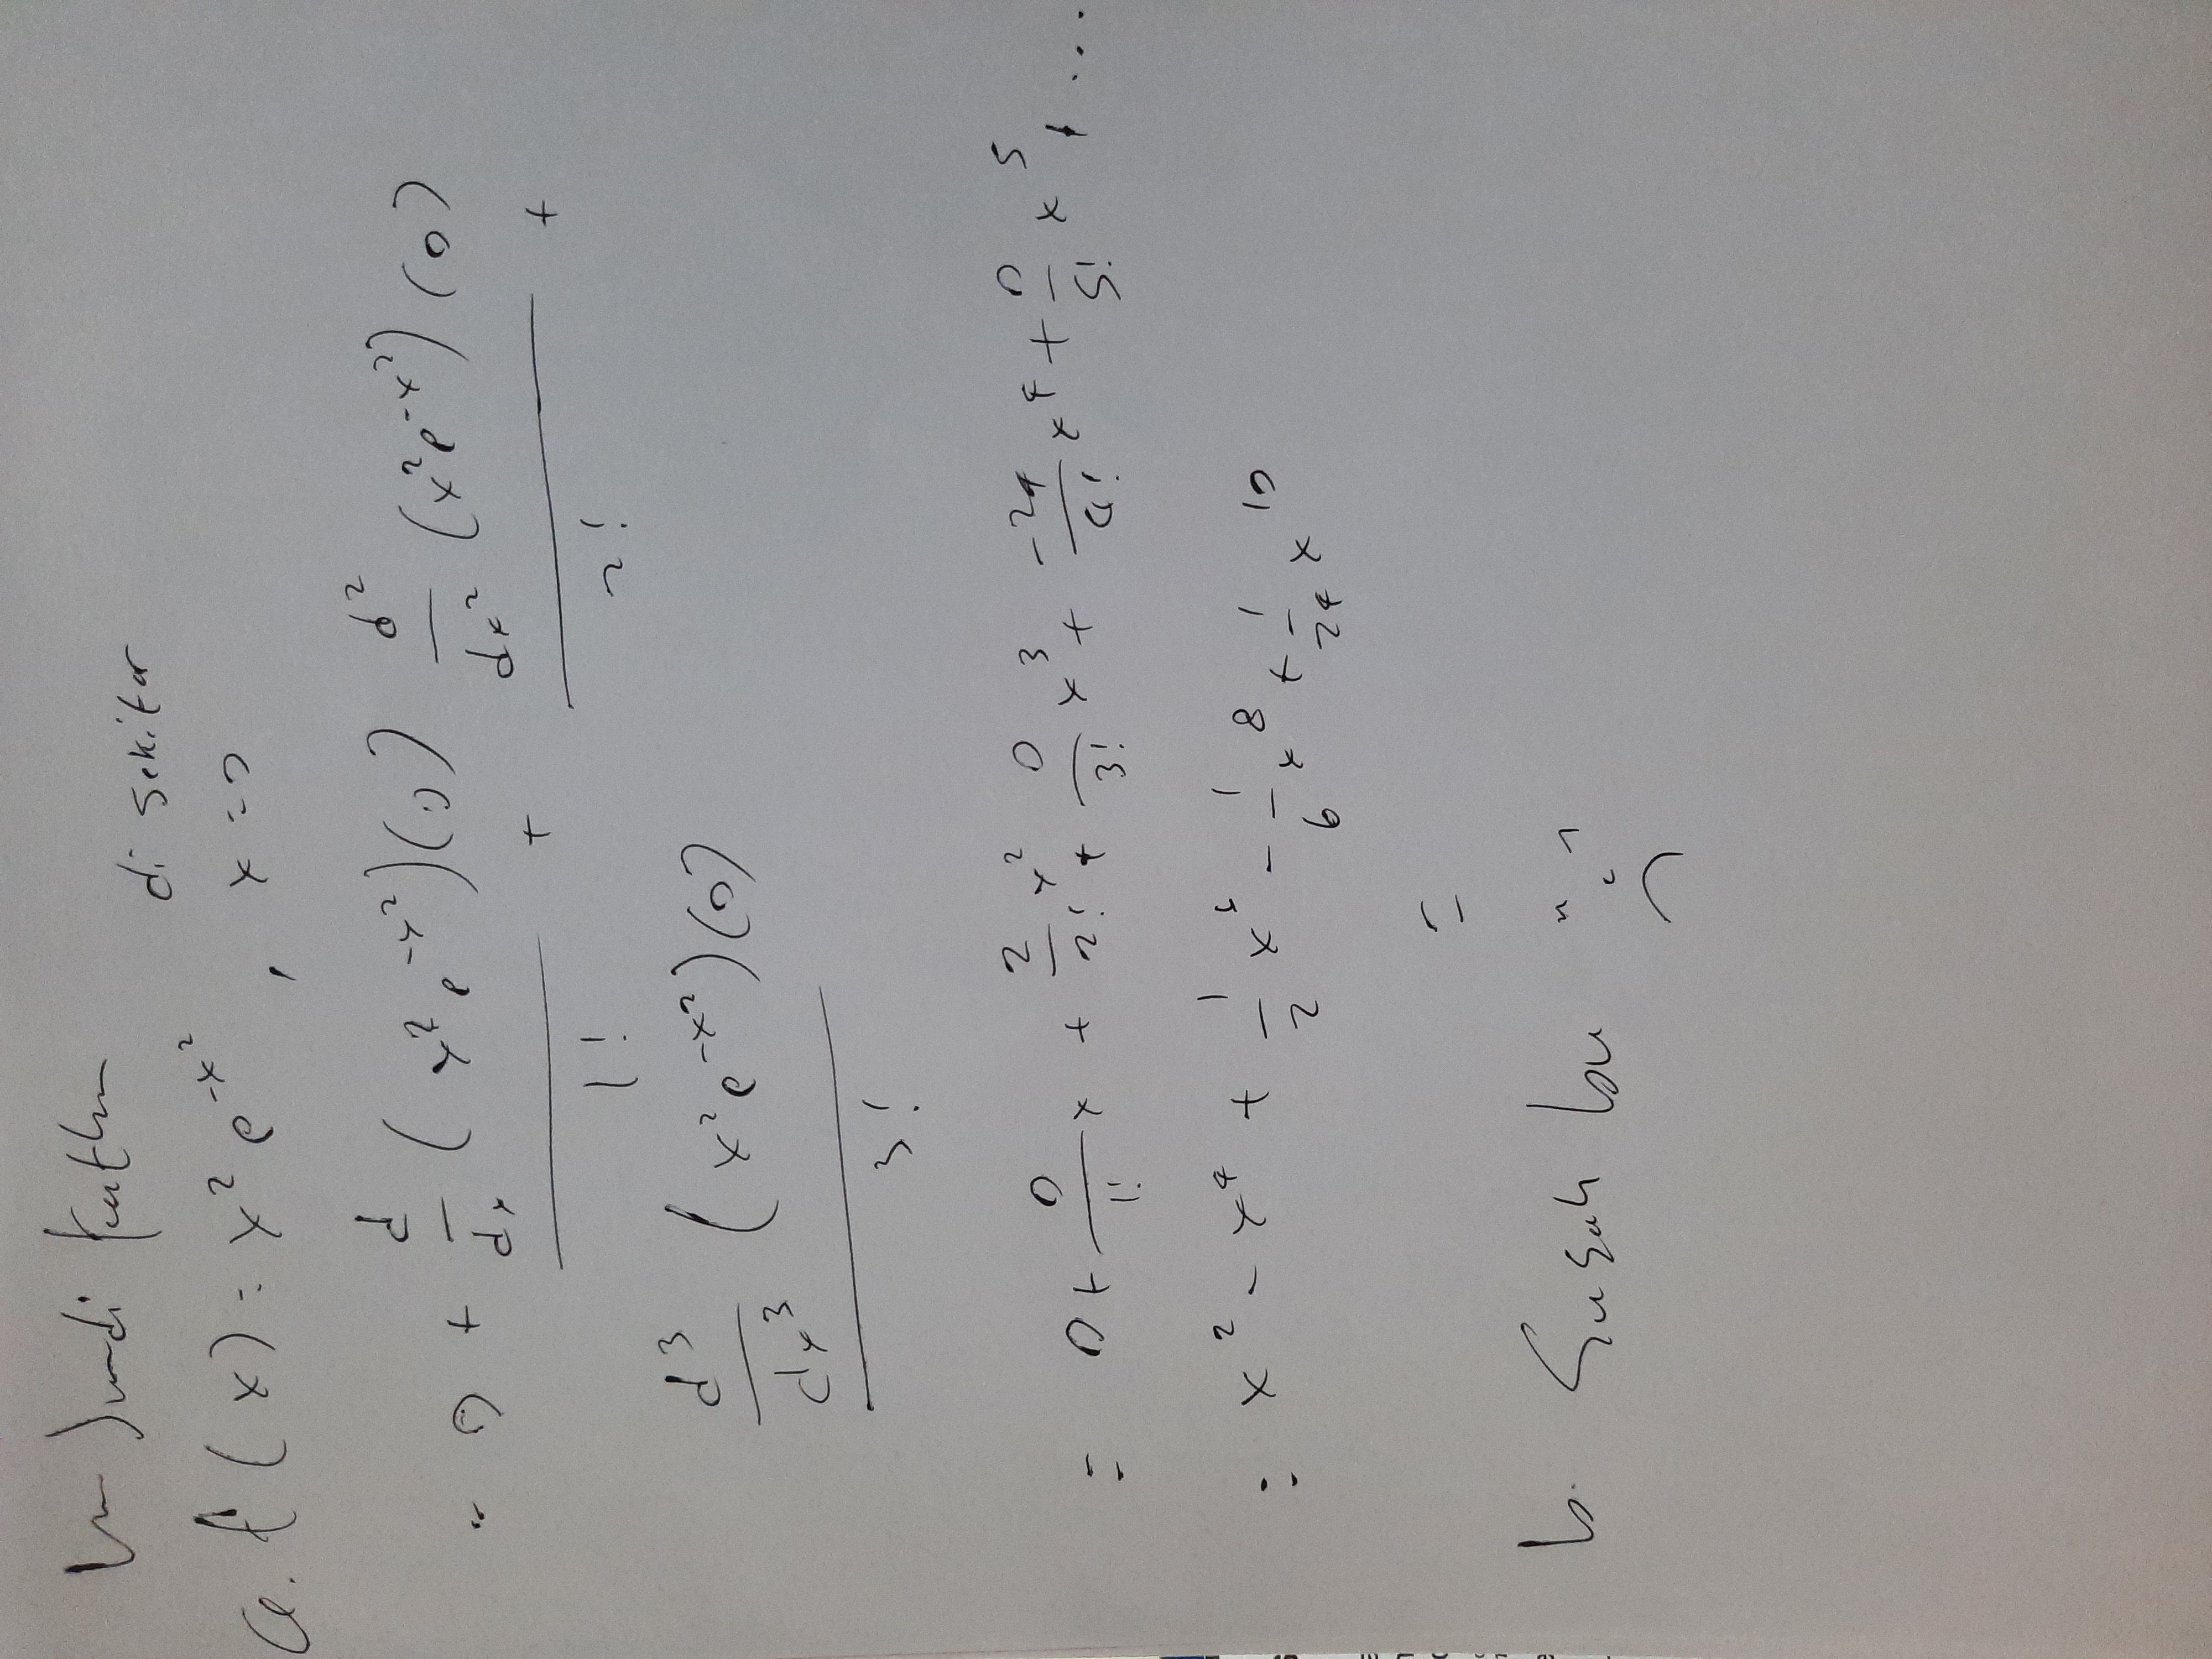 di sekitar
a. f(x) = x² e^{-x²}, x = 0
= 0 + \frac{\frac{d}{dx} (x² e^{-x²})(0)}{1!} + \frac{\frac{d²}{dx²} (x² e^{-x²})(0)}{2!} +
\frac{\frac{d³}{dx³} (x² e^{-x²})(0)}{3!}
= 0 + \frac{0}{1!} x + \frac{2}{2!} x² + \frac{0}{3!} x³ + \frac{-24}{4!} x⁴ + \frac{0}{5!} x⁵ + ...
= x² - x⁴ + \frac{1}{2} x⁶ - \frac{1}{6} x⁸ + \frac{1}{24} x¹⁰
=
b. Susah bu